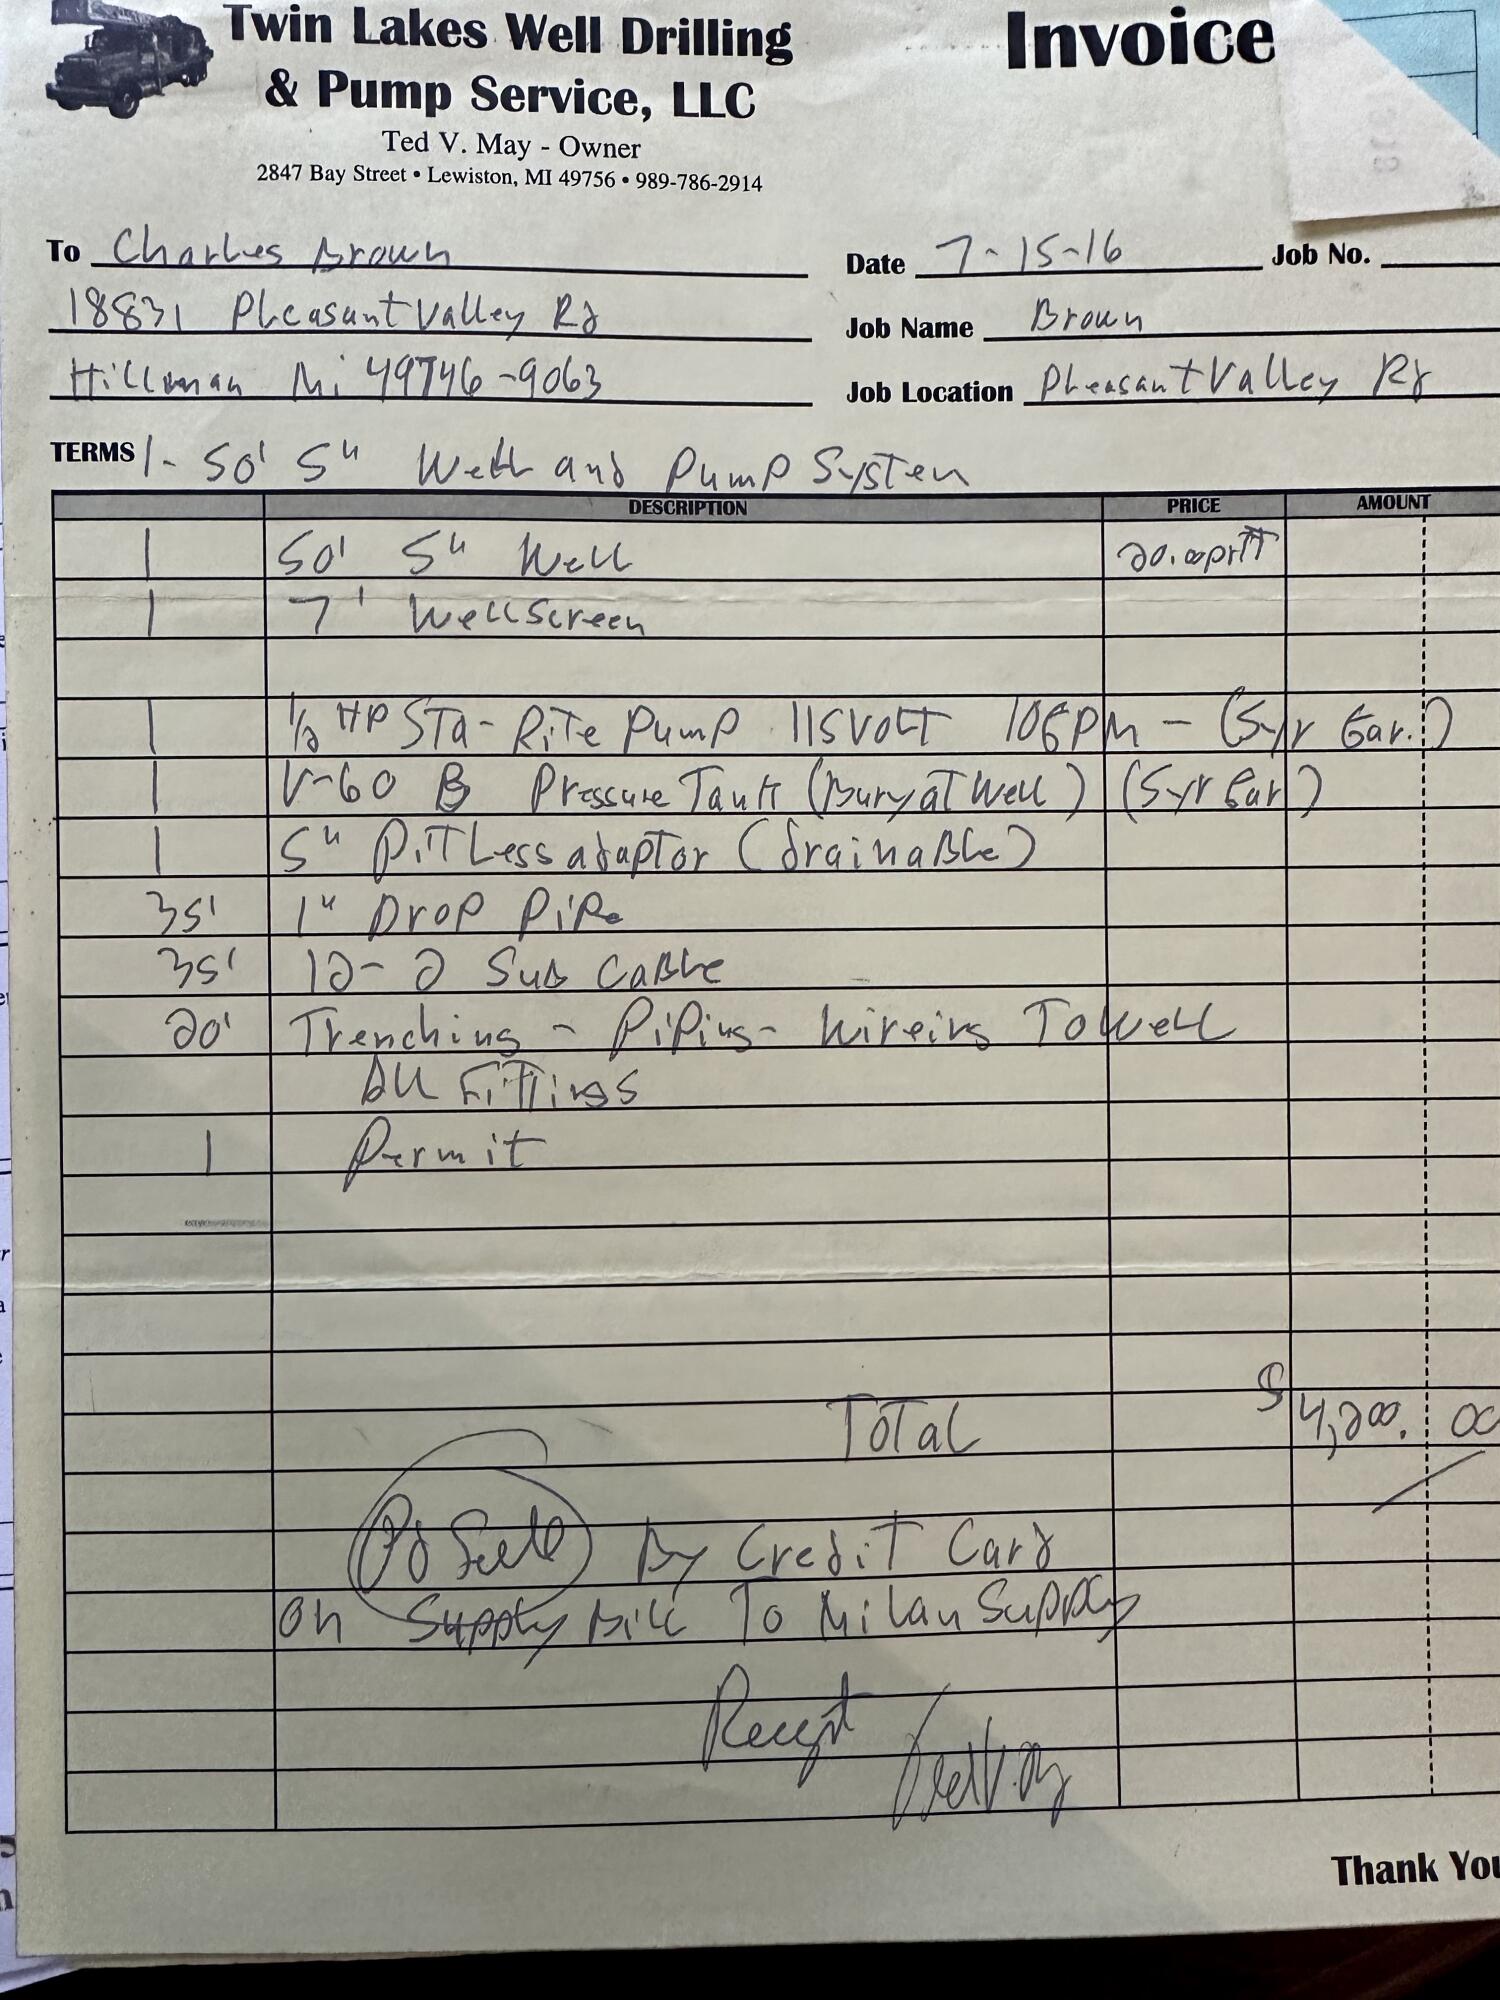 Twin Lakes Well Drilling
& Pump Service, LLC
Invoice
Ted V. May - Owner
2847 Bay Street • Lewiston, MI 49756 • 989-786-2914
To Charles Brown
Date 7-15-16 Job No.
18831 Pleasant Valley Rd
Job Name Brown
Hillman Mi 49746-9063
Job Location Pleasant Valley Rd
TERMS 1- 50' 5" Well and Pump System
DESCRIPTION PRICE AMOUNT
1 50' 5" Well 20.00 pr FT
1 7' Well Screen
1 1/2 HP STa-RiTe Pump 115 VOLT 10GPM - (5yr Gar.)
1 V-60 B Pressure Tank (Bury aT Well) (5yr Gar)
1 5" PiTLess adaptor (drainaBle)
35' 1" Drop PiPe
35' 12-2 Sub CaBle
20' Trenching - PiPing - Wireing To Well
All FiTTings
1 Permit
ToTaL $4,200.00
Pd Full By CrediT Card
on Supply Bill To Milan Supply
Receipt Ted V. May
Thank You